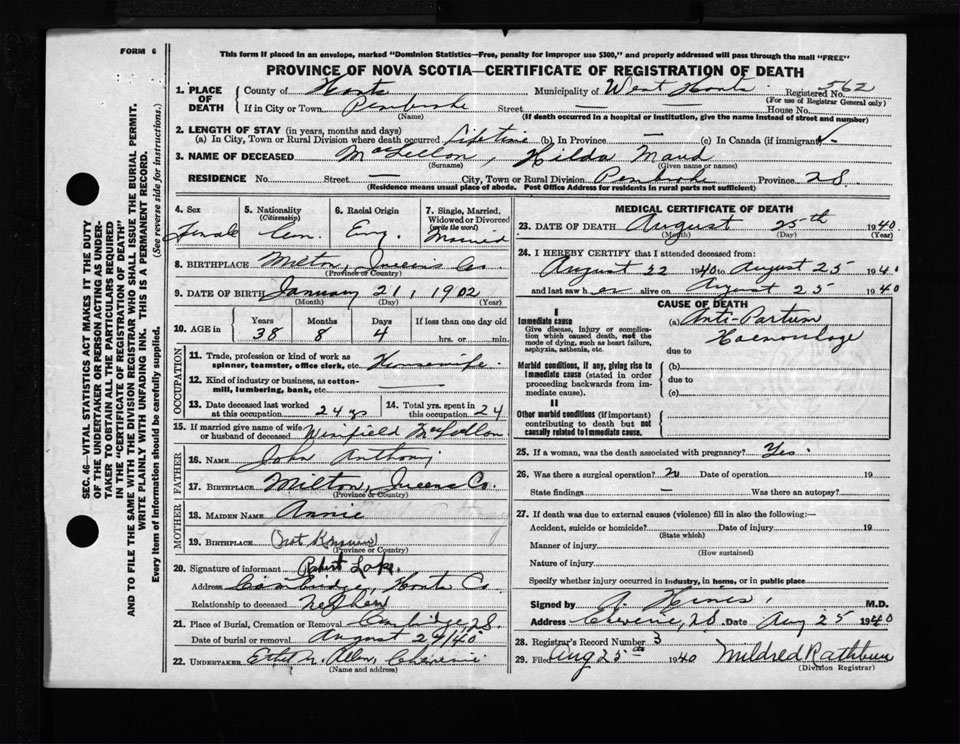 FORM 6
This form if placed in an envelope, marked "Dominion Statistics—Free, penalty for improper use $300," and properly addressed will pass through the mail "FREE"
PROVINCE OF NOVA SCOTIA—CERTIFICATE OF REGISTRATION OF DEATH
SEC. 46—VITAL STATISTICS ACT MAKES IT THE DUTY
OF THE UNDERTAKER OR PERSON ACTING AS UNDER-
TAKER TO OBTAIN ALL THE PARTICULARS REQUIRED
IN THE "CERTIFICATE OF REGISTRATION OF DEATH"
AND TO FILE THE SAME WITH THE DIVISION REGISTRAR WHO SHALL ISSUE THE BURIAL PERMIT.
WRITE PLAINLY WITH UNFADING INK. THIS IS A PERMANENT RECORD.
Every item of information should be carefully supplied. (See reverse side for instructions.)
1. PLACE OF DEATH County of Hants Municipality of West Hants Registered No. 562
(For use of Registrar General only)
If in City or Town Pembroke Street — House No.
(Name) (If death occurred in a hospital or institution, give the name instead of street and number)
2. LENGTH OF STAY (in years, months and days)
(a) In City, Town or Rural Division where death occurred Life time (b) In Province — (c) In Canada (if immigrant)
3. NAME OF DECEASED MacLellon, Hilda Maud
(Surname) (Given name or names)
RESIDENCE No. Street — City, Town or Rural Division Pembroke Province N.S.
(Residence means usual place of abode. Post Office Address for residents in rural parts not sufficient)
4. Sex Female
5. Nationality (Citizenship) Can.
6. Racial Origin Eng.
7. Single, Married, Widowed or Divorced (write the word) Married
8. BIRTHPLACE Milton, Queens Co.
(Province or Country)
9. DATE OF BIRTH January 21, 1902
(Month) (Day) (Year)
10. AGE in Years 38 Months 8 Days 4 If less than one day old hrs. or min.
OCCUPATION
11. Trade, profession or kind of work as spinner, teamster, office clerk, etc. Housewife
12. Kind of industry or business, as cotton-mill, lumbering, bank, etc. —
13. Date deceased last worked at this occupation
14. Total yrs. spent in this occupation 24
15. If married give name of wife or husband of deceased Winfield McLellon
FATHER
16. Name John Anthony
17. Birthplace Milton, Queens Co.
(Province or Country)
MOTHER
18. Maiden Name Annie
19. Birthplace (not known)
(Province or Country)
20. Signature of informant Robert Lake
Address Cambridge, Hants Co.
Relationship to deceased Nephew
21. Place of Burial, Cremation or Removal Cambridge, N.S.
Date of burial or removal August 27/40
22. UNDERTAKER Allen, Cheverie
(Name and address)
MEDICAL CERTIFICATE OF DEATH
23. DATE OF DEATH August 25th 1940
(Month) (Day) (Year)
24. I HEREBY CERTIFY that I attended deceased from:
August 22 1940 to August 25 194
and last saw her alive on August 25 1940
CAUSE OF DEATH
I
Immediate cause
Give disease, injury or complication which caused death, not the mode of dying, such as heart failure, asphyxia, asthenia, etc.
(a) Anti-Partum
Haemorrhage
due to
Morbid conditions, if any, giving rise to immediate cause (stated in order proceeding backwards from immediate cause).
(b)
due to
(c)
II
Other morbid conditions (if important) contributing to death but not causally related to immediate cause.
25. If a woman, was the death associated with pregnancy? Yes.
26. Was there a surgical operation? N Date of operation 19
State findings — Was there an autopsy?
27. If death was due to external causes (violence) fill in also the following:—
Accident, suicide or homicide? Date of injury 19
(State which)
Manner of injury
(How sustained)
Nature of injury
Specify whether injury occurred in industry, in home, or in public place
Signed by A. Hines, M.D.
Address Cheverie, N.S. Date Aug 25 1940
28. Registrar's Record Number 3
29. Filed Aug 25th 1940 Mildred Rathbun
(Division Registrar)